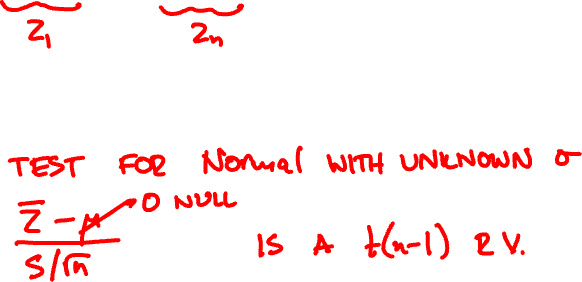 Z₁ Zₙ
TEST FOR Normal WITH UNKNOWN σ
Z̄ - μ 0 NULL
S/√n IS A t(n-1) RV.